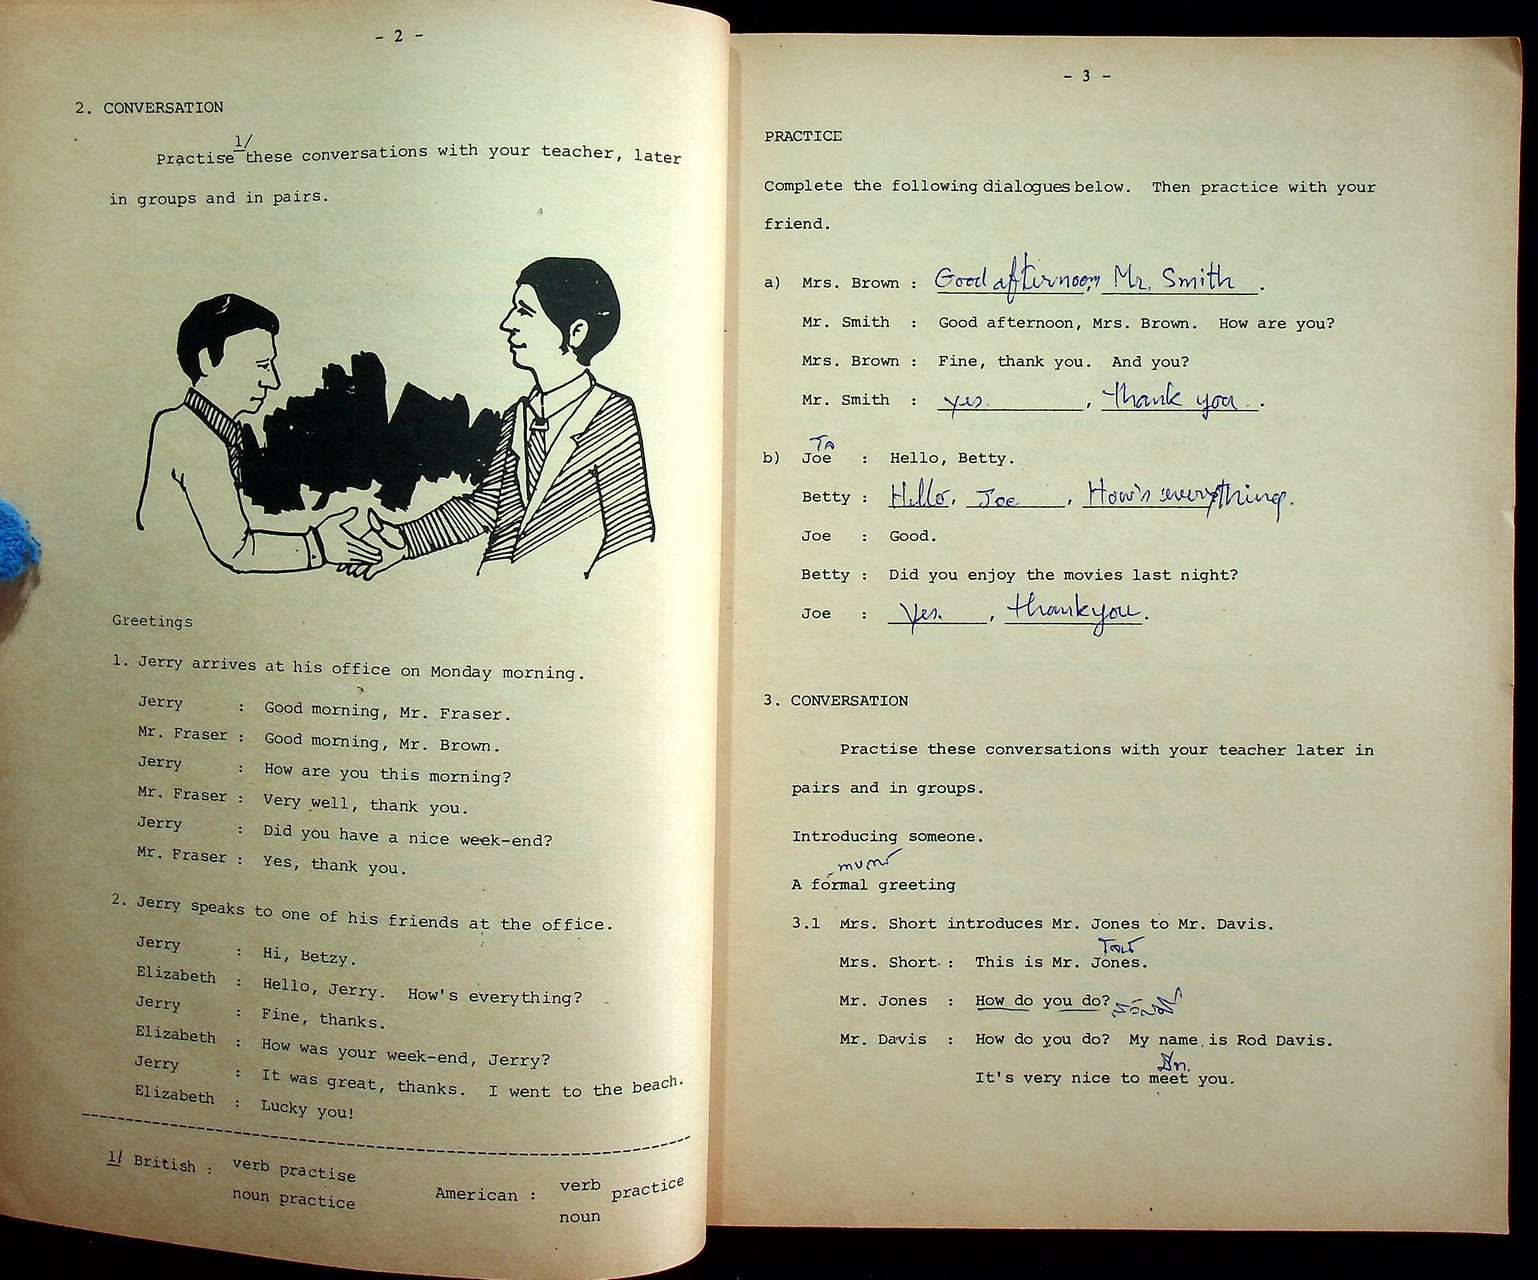 - 2 -
2. CONVERSATION
1/
Practise these conversations with your teacher, later
in groups and in pairs.
Greetings
1. Jerry arrives at his office on Monday morning.
Jerry : Good morning, Mr. Fraser.
Mr. Fraser : Good morning, Mr. Brown.
Jerry : How are you this morning?
Mr. Fraser : Very well, thank you.
Jerry : Did you have a nice week-end?
Mr. Fraser : Yes, thank you.
2. Jerry speaks to one of his friends at the office.
Jerry : Hi, Betzy.
Elizabeth : Hello, Jerry. How's everything?
Jerry : Fine, thanks.
Elizabeth : How was your week-end, Jerry?
Jerry : It was great, thanks. I went to the beach.
Elizabeth : Lucky you!
1/ British : verb practise American : verb practice
noun practice noun
- 3 -
PRACTICE
Complete the following dialogues below. Then practice with your
friend.
a) Mrs. Brown : Good afternoon, Mr. Smith.
Mr. Smith : Good afternoon, Mrs. Brown. How are you?
Mrs. Brown : Fine, thank you. And you?
Mr. Smith : yes. , thank you.
b) Joe : Hello, Betty.
Betty : Hello, Joe , How's everything.
Joe : Good.
Betty : Did you enjoy the movies last night?
Joe : Yes. , thank you.
3. CONVERSATION
Practise these conversations with your teacher later in
pairs and in groups.
Introducing someone.
A formal greeting
3.1 Mrs. Short introduces Mr. Jones to Mr. Davis.
Mrs. Short : This is Mr. Jones.
Mr. Jones : How do you do?
Mr. Davis : How do you do? My name is Rod Davis.
It's very nice to meet you.